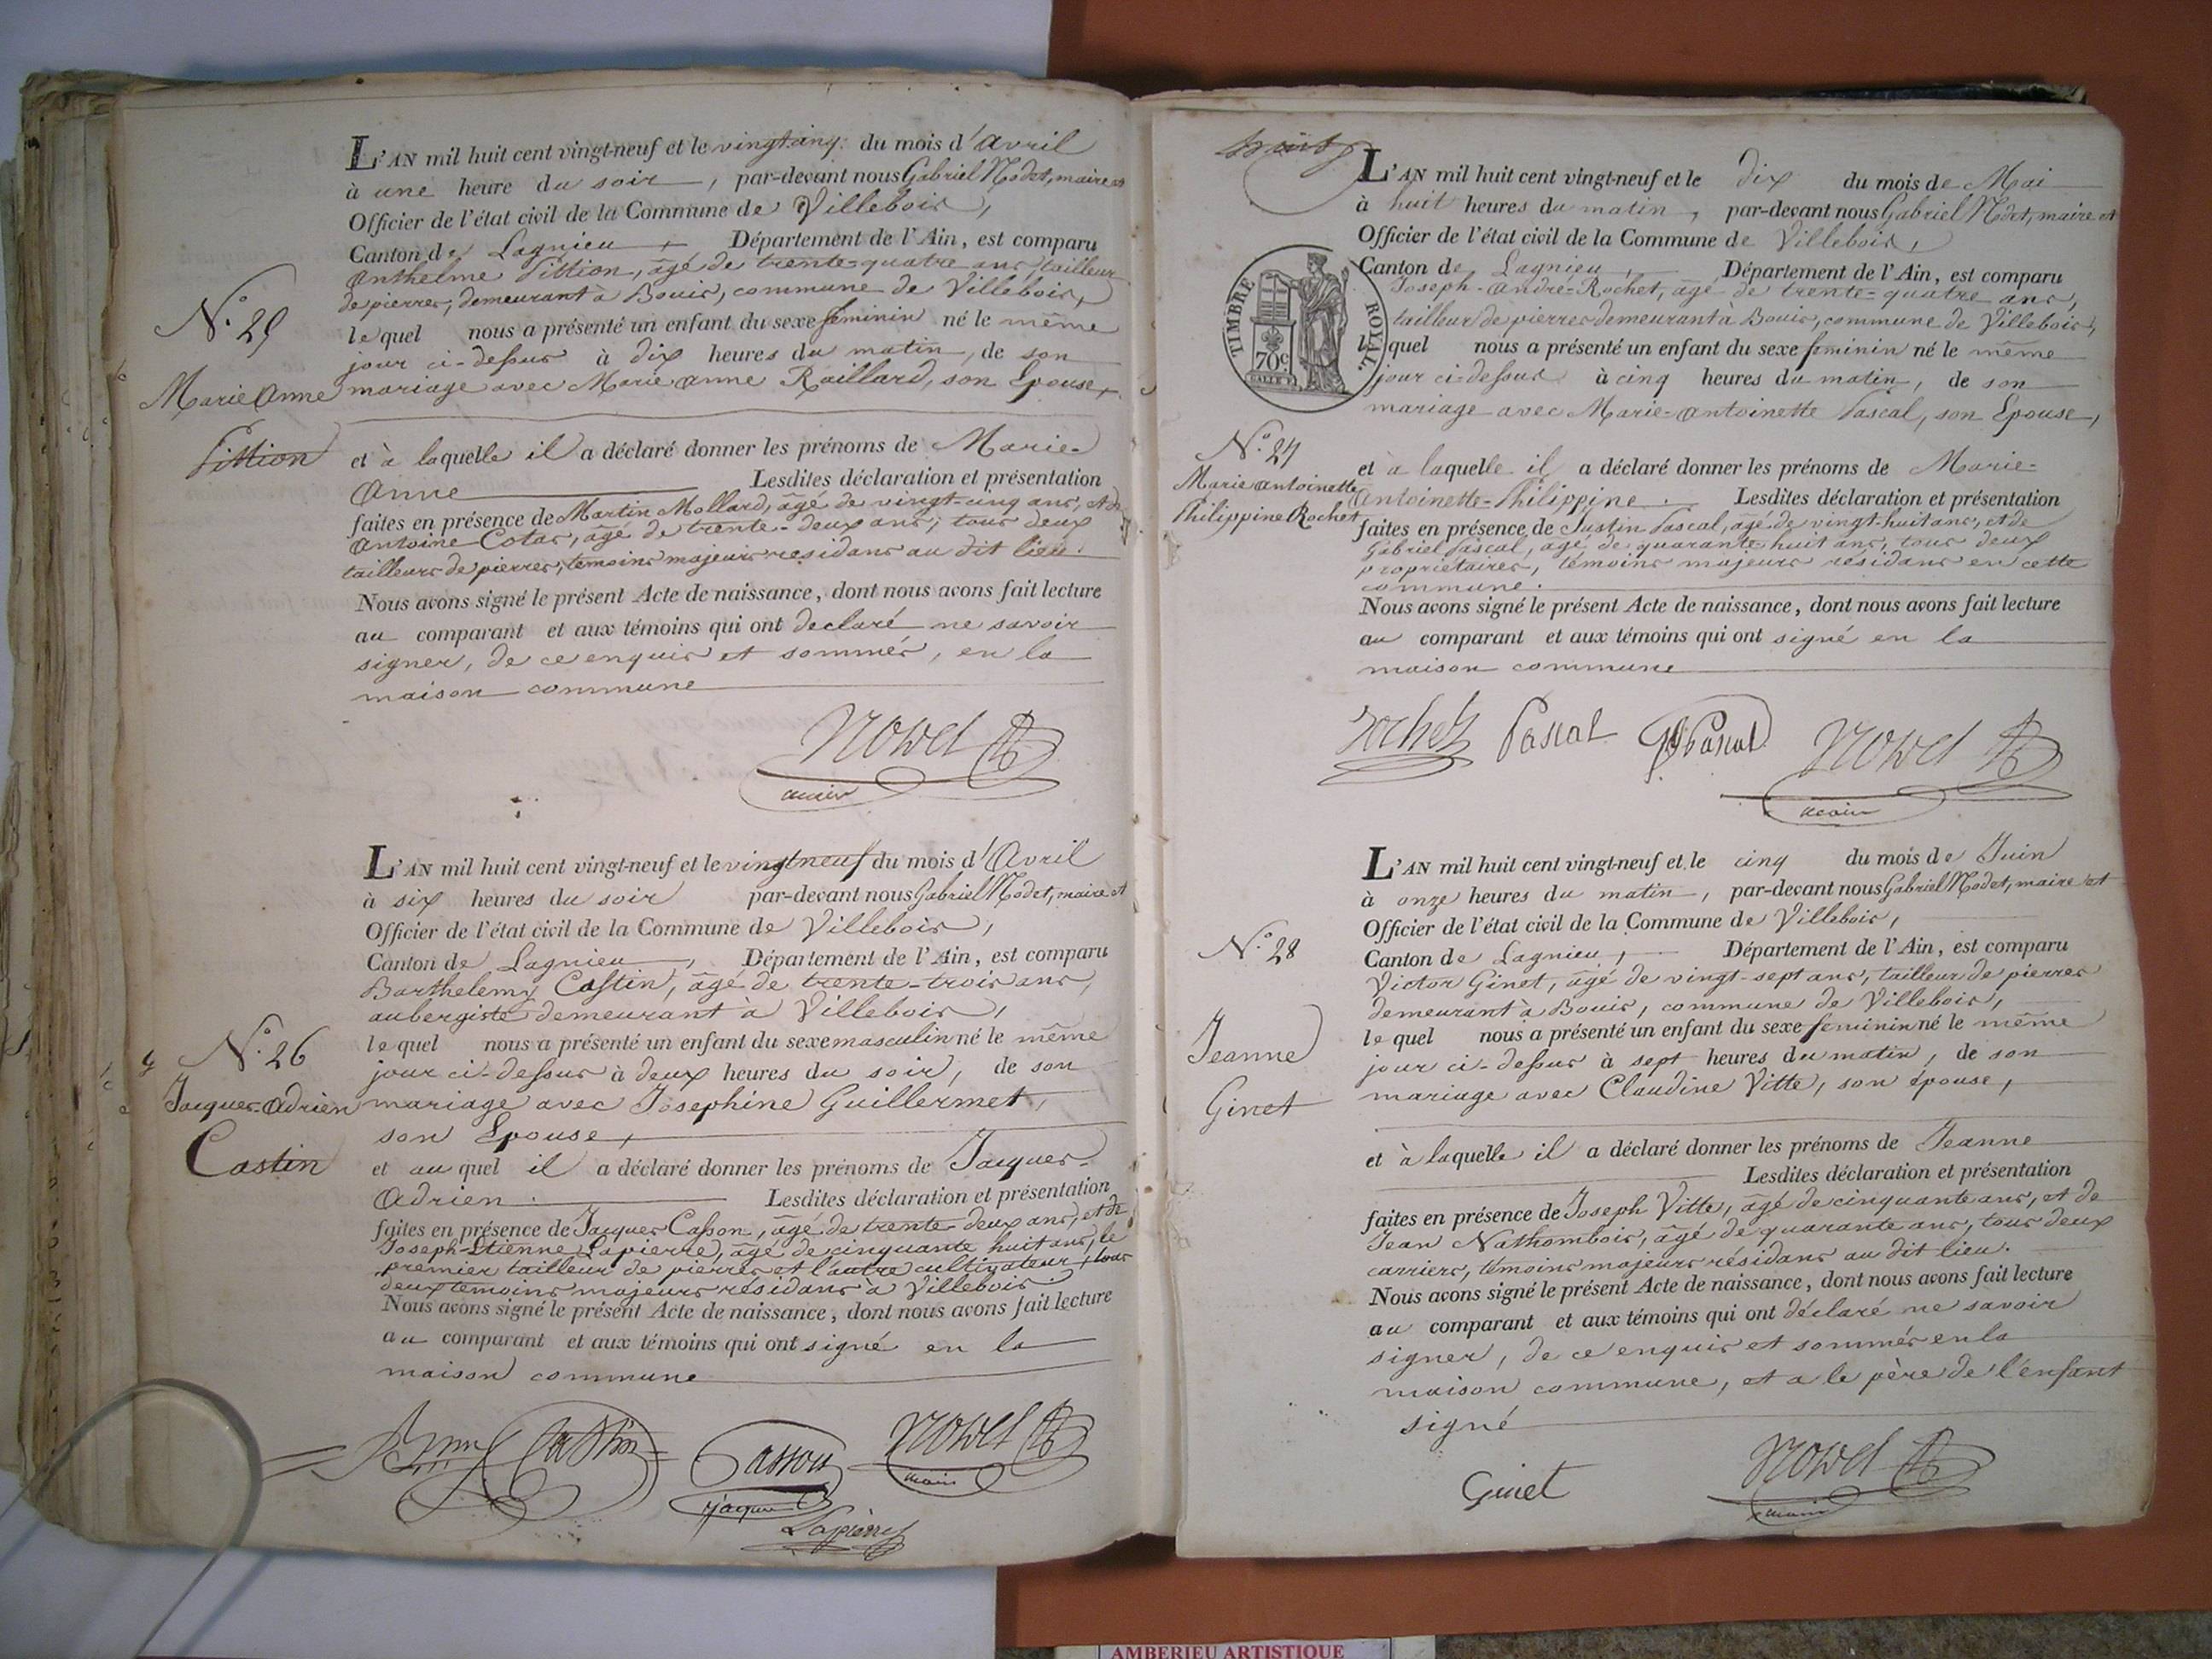 L'AN mil huit cent vingt-neuf et le vingt cinq du mois d'Avril
à une heure du soir, par-devant nous Gabriel Nodet, maire et
Officier de l'état civil de la Commune de Villebois,
Canton de Lagnieu, Département de l'Ain, est comparu
Anthelme Pittion, âgé de trente-quatre ans, tailleur
de pierres, demeurant à Bouis, commune de Villebois,
lequel nous a présenté un enfant du sexe feminin né le même
jour ci-dessus à dix heures du matin, de son
mariage avec Marie Anne Raillard, son Epouse,
N.° 25
Marie Anne
Pittion
et à laquelle il a déclaré donner les prénoms de Marie-
Anne Lesdites déclaration et présentation
faites en présence de Martin Mollard, âgé de vingt-cinq ans, et de
Antoine Cotas, âgé de trente-deux ans, tous deux
tailleurs de pierres, témoins majeurs residans au dit lieu.
Nous avons signé le présent Acte de naissance, dont nous avons fait lecture
au comparant et aux témoins qui ont declaré ne savoir
signer, de ce enquis et sommés, en la
maison commune
maire
L'AN mil huit cent vingt-neuf et le vingt neuf du mois d'Avril
à six heures du soir par-devant nous Gabriel Nodet, maire et
Officier de l'état civil de la Commune de Villebois,
Canton de Lagnieu, Département de l'Ain, est comparu
Barthelemy Castin, âgé de trente-trois ans,
aubergiste demeurant à Villebois,
lequel nous a présenté un enfant du sexe masculin né le même
jour ci-dessus à deux heures du soir, de son
mariage avec Josephine Guillermet,
son Epouse,
N.° 26
Jacques-Adrien
Castin
et au quel il a déclaré donner les prénoms de Jacques-
Adrien. Lesdites déclaration et présentation
faites en présence de Jacques Casson, âgé de trente-deux ans, et de
Joseph-Etienne Lapierre, âgé de cinquante huit ans, le
premier tailleur de pierres et l'autre cultivateur, tous
deux temoins majeurs résidans à Villebois.
Nous avons signé le présent Acte de naissance, dont nous avons fait lecture
au comparant et aux témoins qui ont signé en la
maison commune
Castin Casson maire
Jaque
Lapierre
huit
L'AN mil huit cent vingt-neuf et le dix du mois de Mai
à huit heures du matin, par-devant nous Gabriel Nodet, maire et
Officier de l'état civil de la Commune de Villebois,
Canton de Lagnieu, Département de l'Ain, est comparu
Joseph-André-Rochet, âgé de trente-quatre ans,
tailleur de pierres demeurant à Bouis, commune de Villebois,
lequel nous a présenté un enfant du sexe feminin né le même
jour ci-dessus à cinq heures du matin, de son
mariage avec Marie-Antoinette Pascal, son Epouse,
TIMBRE ROYAL
70c
N.° 27
Marie Antoinette
Philippine Rochet
et à laquelle il a déclaré donner les prénoms de Marie-
Antoinette-Philippine. Lesdites déclaration et présentation
faites en présence de Justin Pascal, âgé de vingt-huit ans, et de
Gabriel Pascal, âgé de quarante huit ans, tous deux
propriétaires, témoins majeurs résidans en cette
commune.
Nous avons signé le présent Acte de naissance, dont nous avons fait lecture
au comparant et aux témoins qui ont signé en la
maison commune
Rochet Pascal Pascal
maire
L'AN mil huit cent vingt-neuf et le cinq du mois de Juin
à onze heures du matin, par-devant nous Gabriel Nodet, maire et
Officier de l'état civil de la Commune de Villebois,
Canton de Lagnieu, Département de l'Ain, est comparu
Victor Ginet, âgé de vingt-sept ans, tailleur de pierres
demeurant à Bouis, commune de Villebois,
lequel nous a présenté un enfant du sexe feminin né le même
jour ci-dessus à sept heures du matin, de son
mariage avec Claudine Vitte, son épouse,
N.° 28
Jeanne
Ginet
et à laquelle il a déclaré donner les prénoms de Jeanne
Lesdites déclaration et présentation
faites en présence de Joseph Vitte, âgé de cinquante ans, et de
Jean Nathombois, âgé de quarante ans, tous deux
carriers, témoins majeurs résidans au dit lieu.
Nous avons signé le présent Acte de naissance, dont nous avons fait lecture
au comparant et aux témoins qui ont déclaré ne savoir
signer, de ce enquis et sommés en la
maison commune, et a le père de l'enfant
signé
Ginet
maire
AMBERIEU ARTISTIQUE